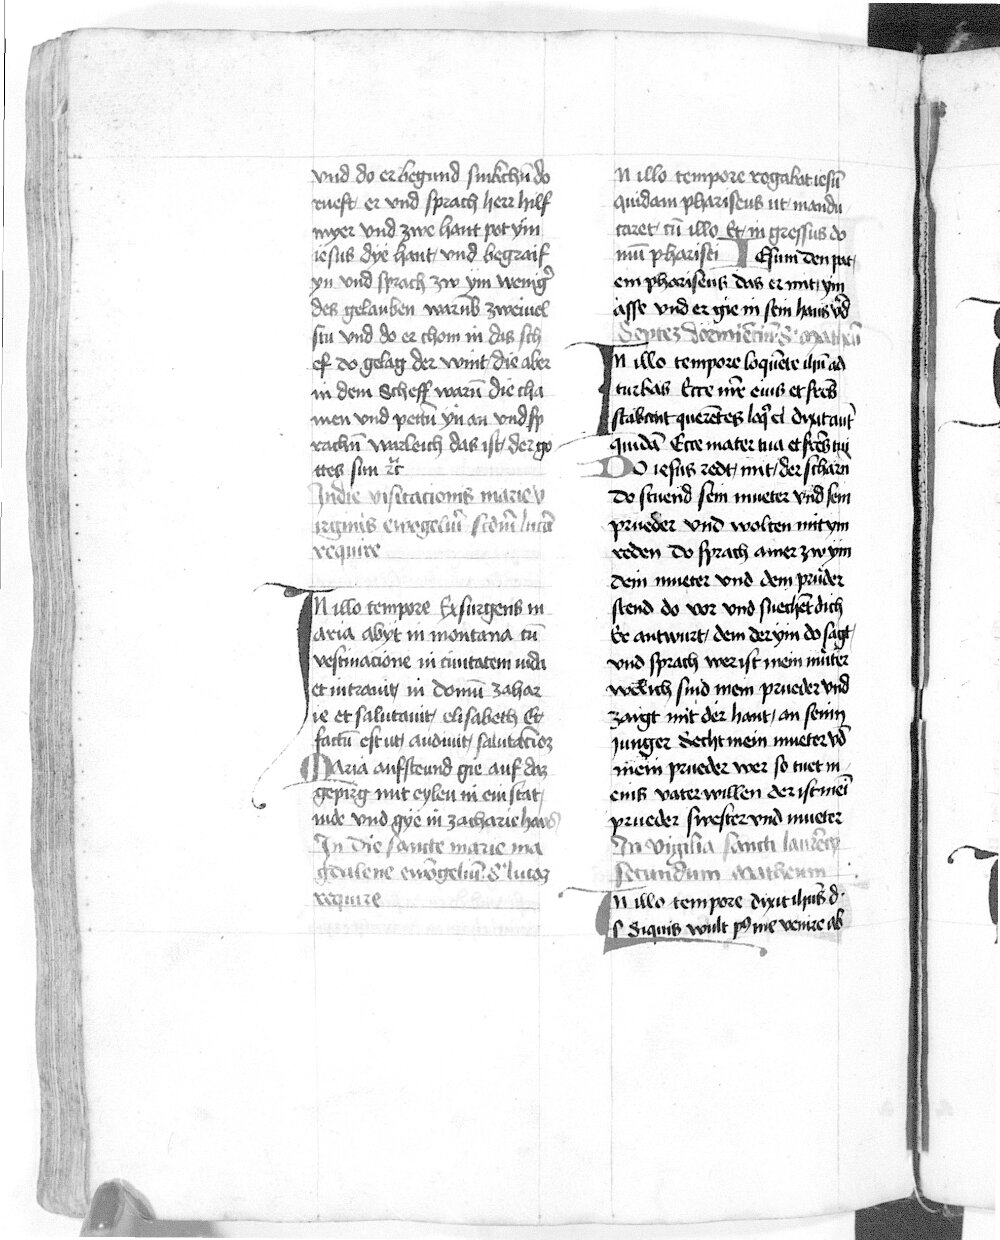 vnd do er begund sinkchn̄ do
rueft er vnd sprach herr hilf
myer vnd zwe hant pot ym
iesus dye hant vnd begraif
yn vnd sprach zw ym wenig͛
des gelauben warūb zweiuel
stu vnd do er chom in das sch
ef do gelag der wint die aber
in dem Scheff warn̄ die cha
men vnd pettn̄ yn an vnd sp
rachn̄ warleich das ist der go
ttes sun ꝛc̄
In die visitacionis marie v
irginis ewōgeliū scdm̄ lucā
require
IN illo tempore Exsurgens m
aria abyt in montana cū
vestinacione in ciuitatem iuda
et intrauit in domū zahar
ie et salutauit elisabeth Et
factū est ut audiuit salutacioꝫ
MAria aufsteund gie auf daz
gepirg mit eylen in ein stat
iude vnd gye in zacharie haus
In die sancte marie ma
gdalene ewōgeliū S lucaꝫ
require
N illo tempore rogabat iesū
quidam phariseus ut mandu
caret cū illo Et in gressus do
mū pharisei IEsum den pat
ein phariseus das er mit ym
asse vnd er gie in sein haus vd̄
Septeꝫ dormienciū S matheū
IN illo tempore loquēte ihū ad
turbas Ecce mr̄e eius et fr̄es
stabant querētes loq̄ ei dixit aut̄
quidā Ecce mater tua et fr̄es tui
DO iesus redt mit der scharn
Do stuend sein mueter vnd sein
prueder vnd wolten mit ym
reden Do sprach ainer zw ym
dein mueter vnd dein prüder
stend do vor vnd suechēt dich
Er antwurt dem der ym do sagt
vnd sprach wer ist mein müter
welich sind mein prueder vnd
zaigt mit der hant an seinn
Junger Secht mein mueter vd̄
mein prueder wer so tuet m
eins vater willen der ist mei
prueder swester vnd mueter
In vigilia sancti laurēcy
secundum Matheum
IN illo tempore dixit ihūs d
s Siquis wult pꝰ me venire ab